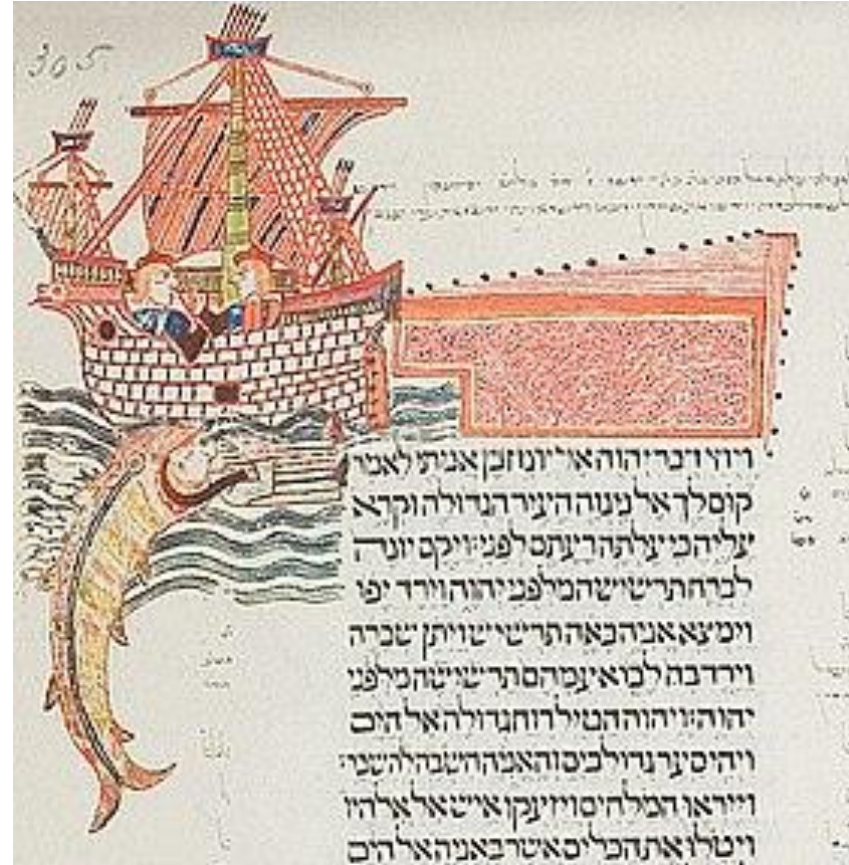 305.
ויהי דבר יהוה אל יונה בן אמתי לאמר
קום לך אל נינוה העיר הגדולה וקרא
עליה כי עלתה רעתם לפני׃ ויקם יונה
לברח תרשישה מלפני יהוה וירד יפו
וימצא אניה באה תרשיש ויתן שכרה
וירד בה לבוא עמהם תרשישה מלפני
יהוה׃ ויהוה הטיל רוח גדולה אל הים
ויהי סער גדול בים והאניה חשבה להשבר
וייראו המלחים ויזעקו איש אל אלהיו
ויטלו את הכלים אשר באניה אל הים